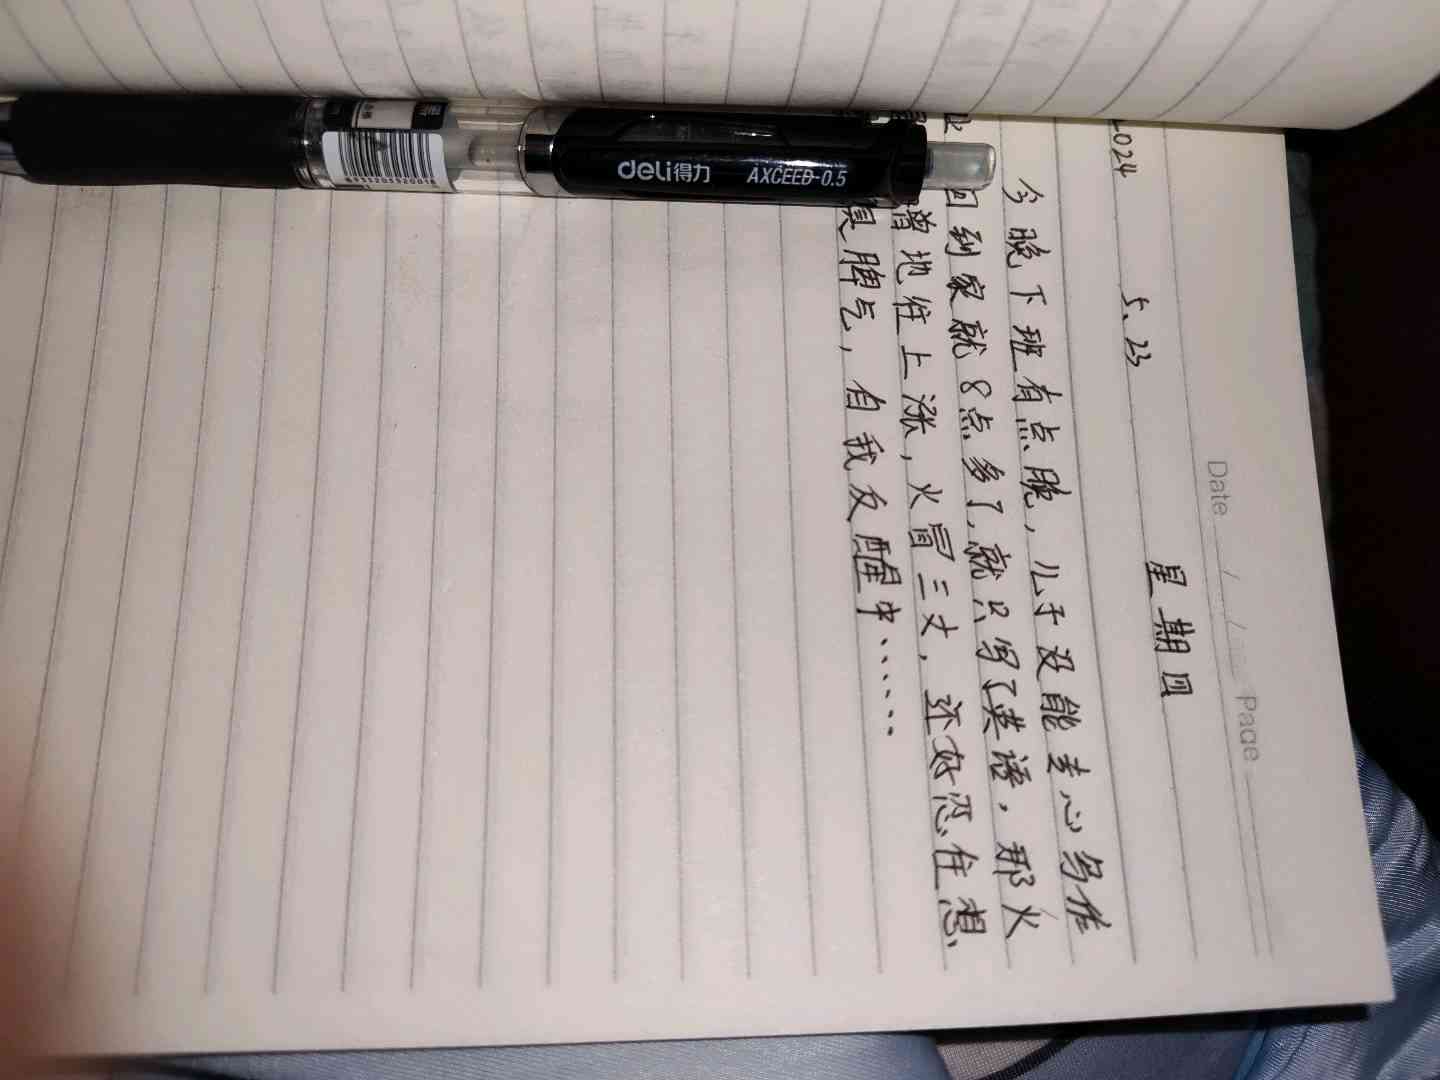 2024 5、23 星期四
今晚下班有点晚，儿子没能专心写作
业 回到家就8点多了,就只写了英语，那火
地往上涨，火冒三丈，还好忍住想
脾气，自我反醒中……
Date / / Page
deli得力 AXCEED-0.5